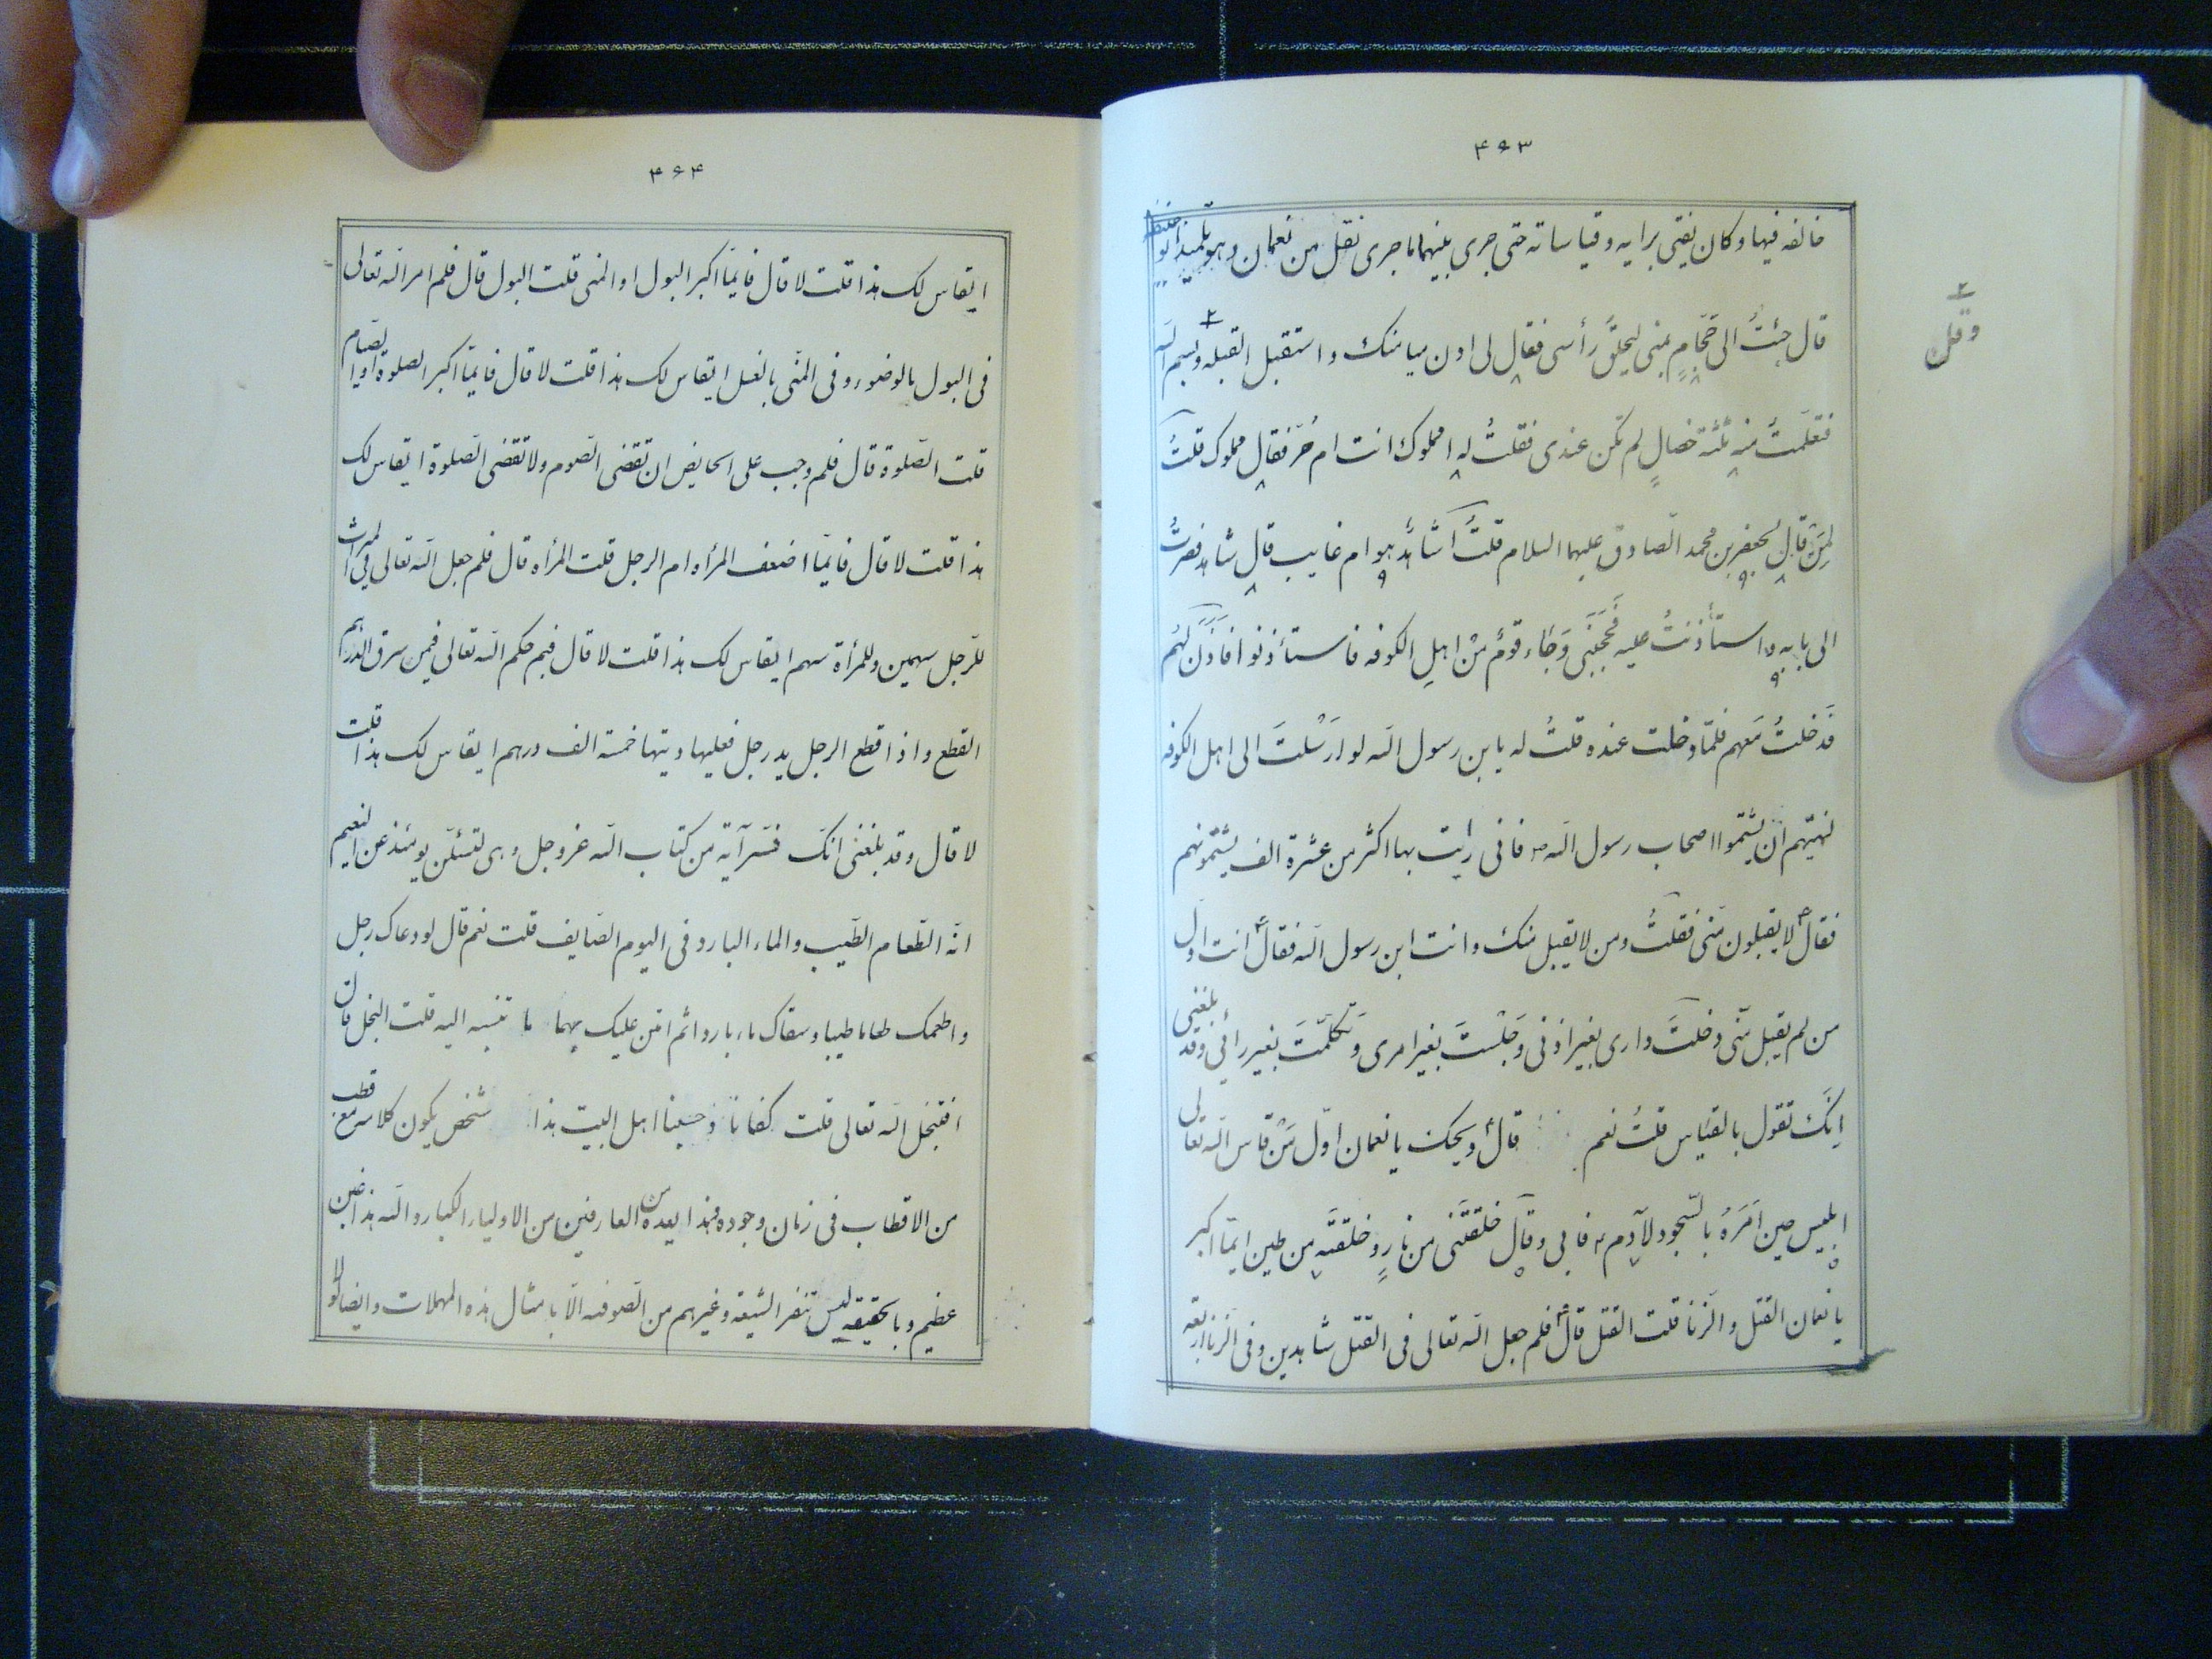 ۴۶۳
خالفه فیها و کان یفتی برایه و قیاساته حتی جری بینهما ما جری نقل من نعمان و هو تلمیذ ابو حنیفه
قال جئتُ الی حَجّامٍ بمنی لیحلق رأسی فقال لی ادن میامنک و استقبل القبله و بسم الله
وقل
فتعلّمتُ منه ثلثة خصالٍ لم تکن عندی فقلتُ له املوک انت ام حُر فقال مملوک قلتُ
لِمَن قال لجعفر بن محمد الصّادق علیهما السلام قلتُ اشاهدٌ هو ام غایب قال شاهد فصرتُ
الی بابه و استأذنتُ علیه فَحَجَبَنی وَجَاء قومٌ مِنْ اهلِ الکوفه فاستأذنوا فَاَذِنَ لَهُم
فَدَخلتُ مَعَهم فلمّا دخلت عنده قلتُ له یابن رسول الله لو ارَسْلتَ الی اهل الکوفه
نهیتهم انْ یشتموا اصحاب رسول الله ص فانی رایت بها اکثر من عشرة الف یشتمونهم
فقال ع لا یقبلون مَنی فقلتُ ومن لا یقبل منک و انت ابن رسول الله فقال ع انت اول
من لم یقبل مَنّی دخلتَ داری بغیر اذنی وَجَلَسْتَ بغیر امری وَتکلّمَتَ بغیر رائی وقد بلغنی
اِنَّکَ تقول بالقیاس قلتُ نعم قال ع ویحک یا نعمان اوّل مَنْ قاس الله تعالی
ابلیس حین اَمَرَهُ بالسّجود لآدم ع فابی وقال خلقتَنی من نارٍ وخلقتَه من طین ایمّا اکبر
یا نعمان القتل و الزنا قلت القتل قال ع فلم جعل الله تعالی فی القتل شاهدین و فی الزنا اربعه
۴۶۴
ایقاس لک هذا قلت لا قال فایمّا اکبر البول او المنی قلت البول قال فلم امر الله تعالی
فی البول بالوضوء و فی المنی بالغسل ایقاس لک هذا قلت لا قال فایمّا اکبر الصلوة او الصیام
قلت الصّلوة قال فلم وجب علی الحایض ان تقضی الصّوم ولا تقضی الصّلوة ایقاس لک
هذا قلت لا قال فایمّا اضعف المرأه ام الرجل قلت المرأه قال فلم جعل الله تعالی فی المیراث
للرّجل سهمین وللمرأة سهم ایقاس لک هذا قلت لا قال فبم حکم الله تعالی فیمن سرق الدراهم
القطع و اذا قطع الرجل ید رجل فعلیها دیتها خمسة الف درهم ایقاس لک هذا قلت
لا قال و قد بلغنی انکّ فسّر آیة من کتاب الله عز وجل وهی لتسئلنّ یومئذ عن النعیم
انّه الطّعام الطّیب و الماء البارد فی الیوم الصّایف قلت نعم قال لو دعاک رجل
و اطعمک طعاما طیبا و سقاک ماء باردا ثم امتن علیک بهما ما تنسبه الیه قلت البخل قال
افتبخل الله تعالی قلت کفانا و حسبنا اهل البیت هذا شخص یکون کلامه مع قطب
من الاقطاب فی زمان وجوده فهذا بعده من العارفین من الاولیاء الکبار و الله هذا غبن
عظیم و بالحقیقه لیس تنفر الشیعه و غیرهم من الصّوفیه الّا بامثال هذه المهملات و ایضا لولا